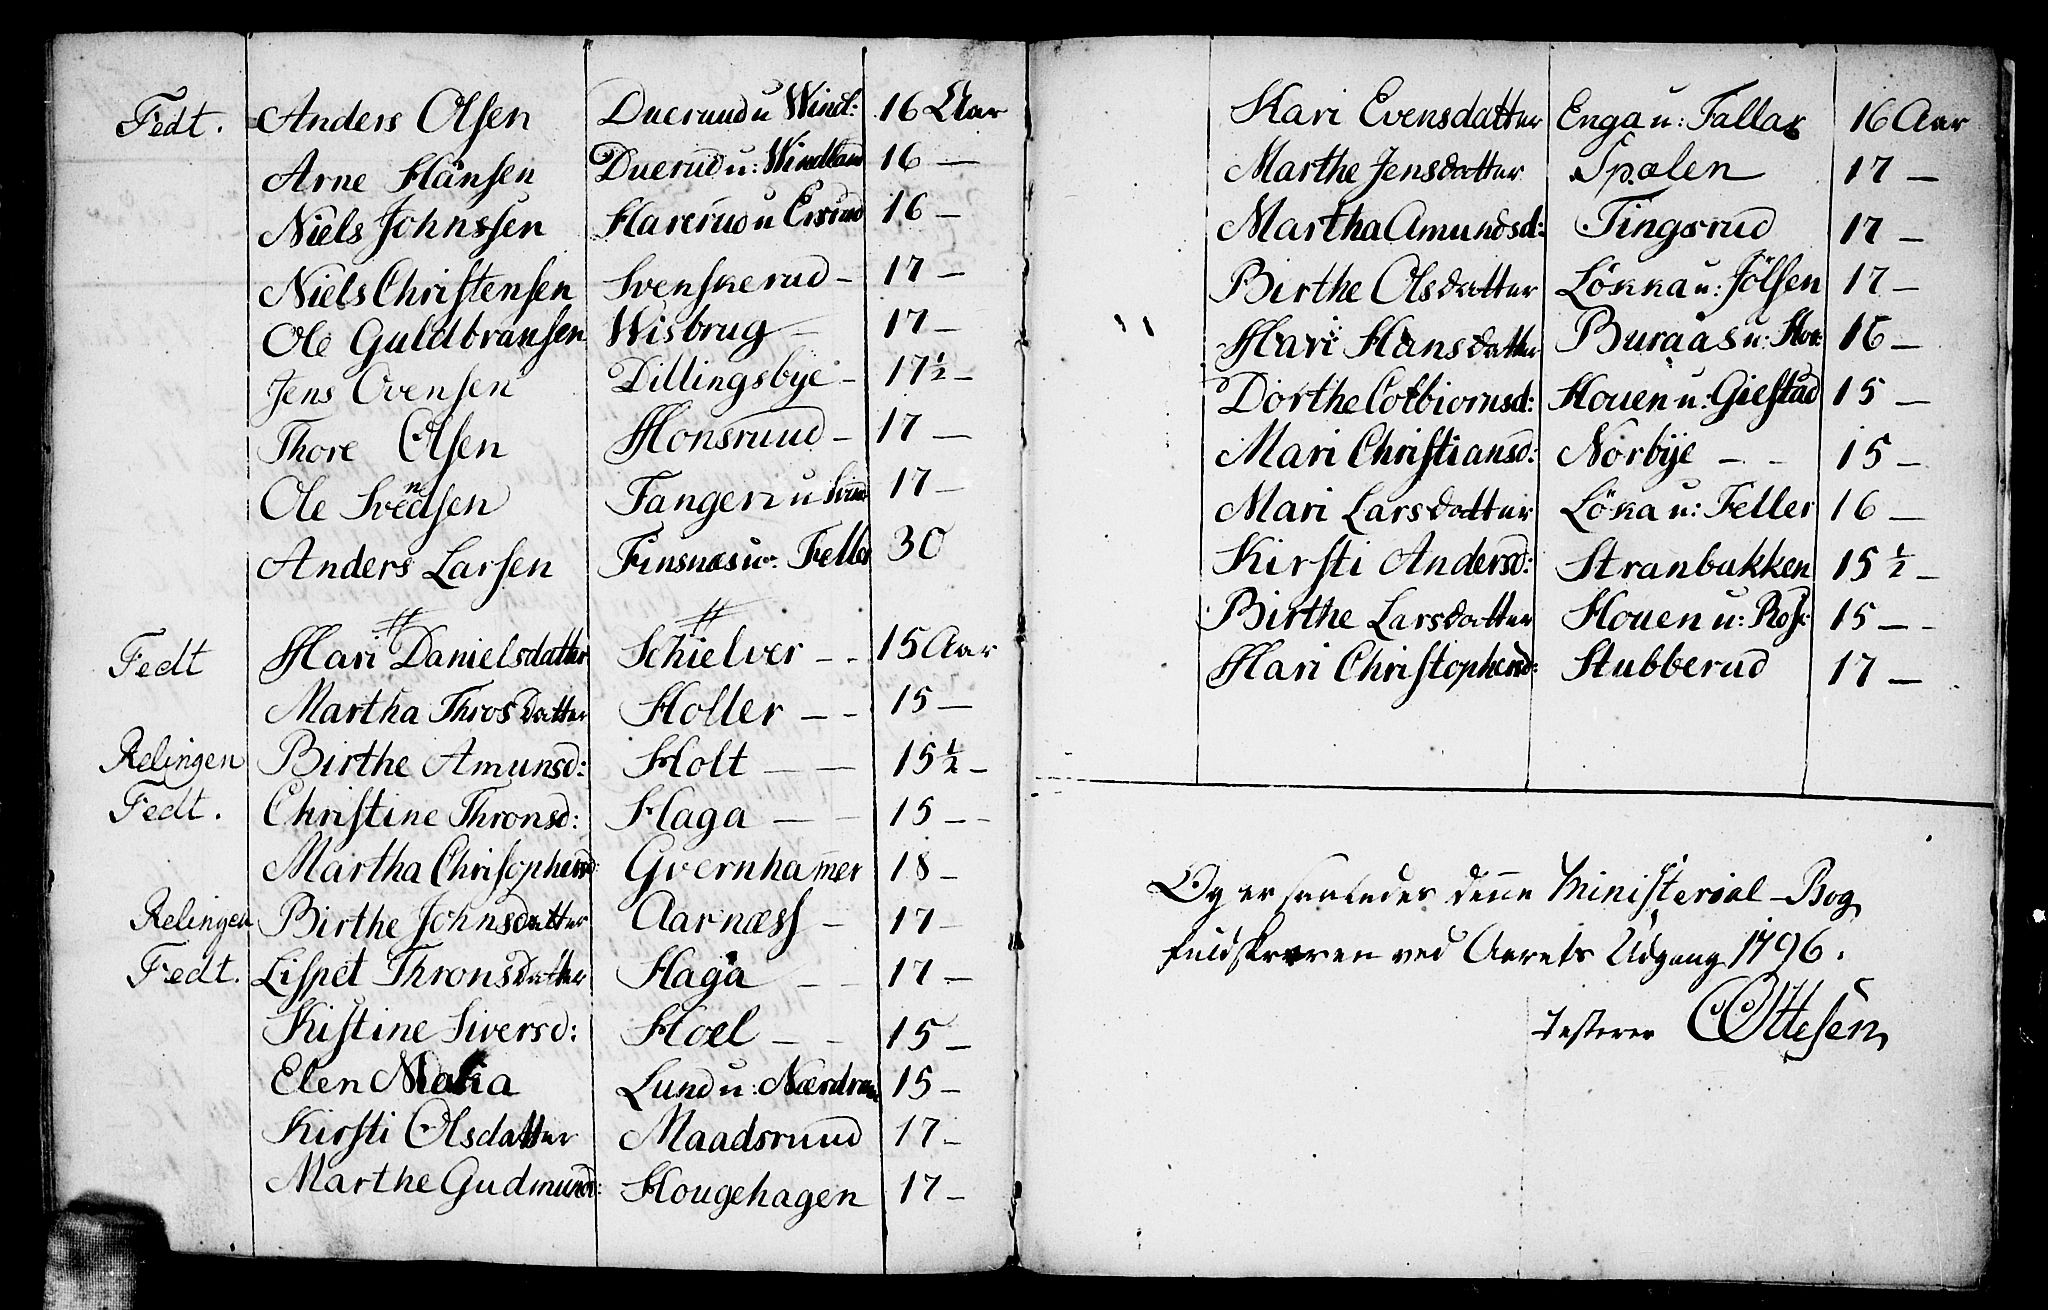 Fedt. Anders Olsen Duerud u Windl: 16 Aar
Arne Hansen Duerud u: Windland 16 —
Niels Johnssen Harerud u Ersrud 16 —
Niels Christensen Svenskerud — 17 —
Ole Guldbransen Wisbrug — 17 —
Jens Evensen Dillingsbye — 17½ —
Thore Olsen Honsruud — 17 —
Ole Svendsen Tangen u 17 —
Anders Larsen Finsnæs u: Feller 30
Fedt Kari Danielsdatter Schielver — — 15 Aar
Martha Throsdatter Holler — — 15 —
Relingen Birthe Amunsd: Holt — — 15½ —
Fedt. Christine Thronsd: Haga — — 15 — —
Martha Chrisophersd: Gvernhamer 18 —
Relingen Birthe Johnsdatter Aarnæss — 17 —
Fedt. Lispet Thronsdatter Haga — — 17 —
Kistine Siversd: Hoel — — 15 —
Elen Maria Lund u: 15 —
Kirsti Olsdatter Maadsruud 17 —
Marthe Gudmunsd: Hougehagen 17 —
Kari Evensdatter Enga u: Fallax 16 Aar
Marthe Jensdatter Spålen 17 —
Martha Amundsd: Tingsrud 17 —
Birthe Olsdatter Løkka u: Jölsen 17 —
Kari Hansdatter Buraas u: 16 —
Dorthe Colbiornsd: Houen u: Giestad 15 —
Mari Christiansd: Norbye — — 15 —
Mari Larsdatter Løka u: Feller 16 —
Kirsti Andersd: Stranbakken 15½ —
Birthe Larsdatter Houen u: Ros: 15 — —
Kari Christophersd: Stubberud 17 —
Og er saaledes denne Ministerial-Bog
fuldskreven ved Aarets Udgang 1796.
Testerer COttesen